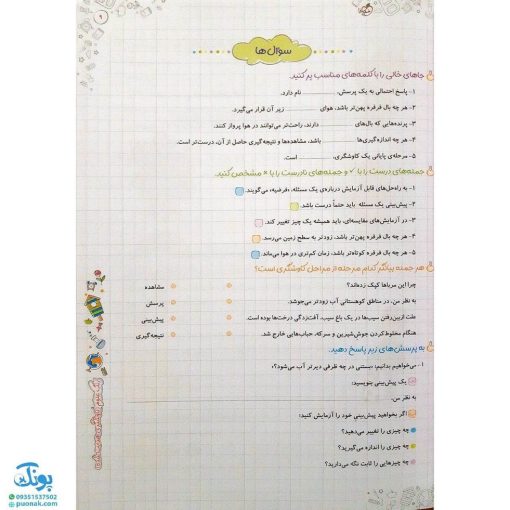 ۹
سؤال‌ها
جاهای خالی را با کلمه‌های مناسب پر کنید.
۱- پاسخ احتمالی به یک پرسش، نام دارد.
۲- هر چه بال فرفره پهن‌تر باشد، هوای زیر آن قرار می‌گیرد.
۳- پرنده‌هایی که بال‌های دارند، راحت‌تر می‌توانند در هوا پرواز کنند.
۴- هر چه اندازه‌گیری‌ها باشد، مشاهده‌ها و نتیجه‌گیری حاصل از آن، درست‌تر است.
۵- مرحله‌ی پایانی یک کاوشگری، است.
جمله‌های درست را با ✓ و جمله‌های نادرست را با × مشخص کنید.
۱- به راه‌حل‌های قابل آزمایش درباره‌ی یک مسئله، «فرضیه» می‌گویند.
۲- پیش‌بینی یک مسئله باید حتماً درست باشد.
۳- در آزمایش‌های مقایسه‌ای، باید همیشه یک چیز تغییر کند.
۴- هر چه بال فرفره پهن‌تر باشد، زودتر به سطح زمین می‌رسد.
۵- هر چه بال فرفره کوتاه‌تر باشد، زمان کم‌تری در هوا می‌ماند.
هر جمله بیانگر کدام مرحله از مراحل کاوشگری است؟
چرا این مرباها کپک زده‌اند؟ مشاهده
به نظر من، در مناطق کوهستانی آب زودتر می‌جوشد. پرسش
علت ازبین‌رفتن سیب‌ها در یک باغ سیب، آفت‌زدگی درخت‌ها بوده است. پیش‌بینی
هنگام مخلوط‌کردن جوش‌شیرین و سرکه، حباب‌هایی خارج شد. نتیجه‌گیری
به پرسش‌های زیر پاسخ دهید.
۱- می‌خواهیم بدانیم: «بستنی در چه ظرفی دیرتر آب می‌شود؟»
یک پیش‌بینی بنویسید:
به نظر من،
اگر بخواهید پیش‌بینی خود را آزمایش کنید:
چه چیزی را تغییر می‌دهید؟
چه چیزی را اندازه می‌گیرید؟
چه چیزهایی را ثابت نگه می‌دارید؟
پونک
09351537502
puonak.com